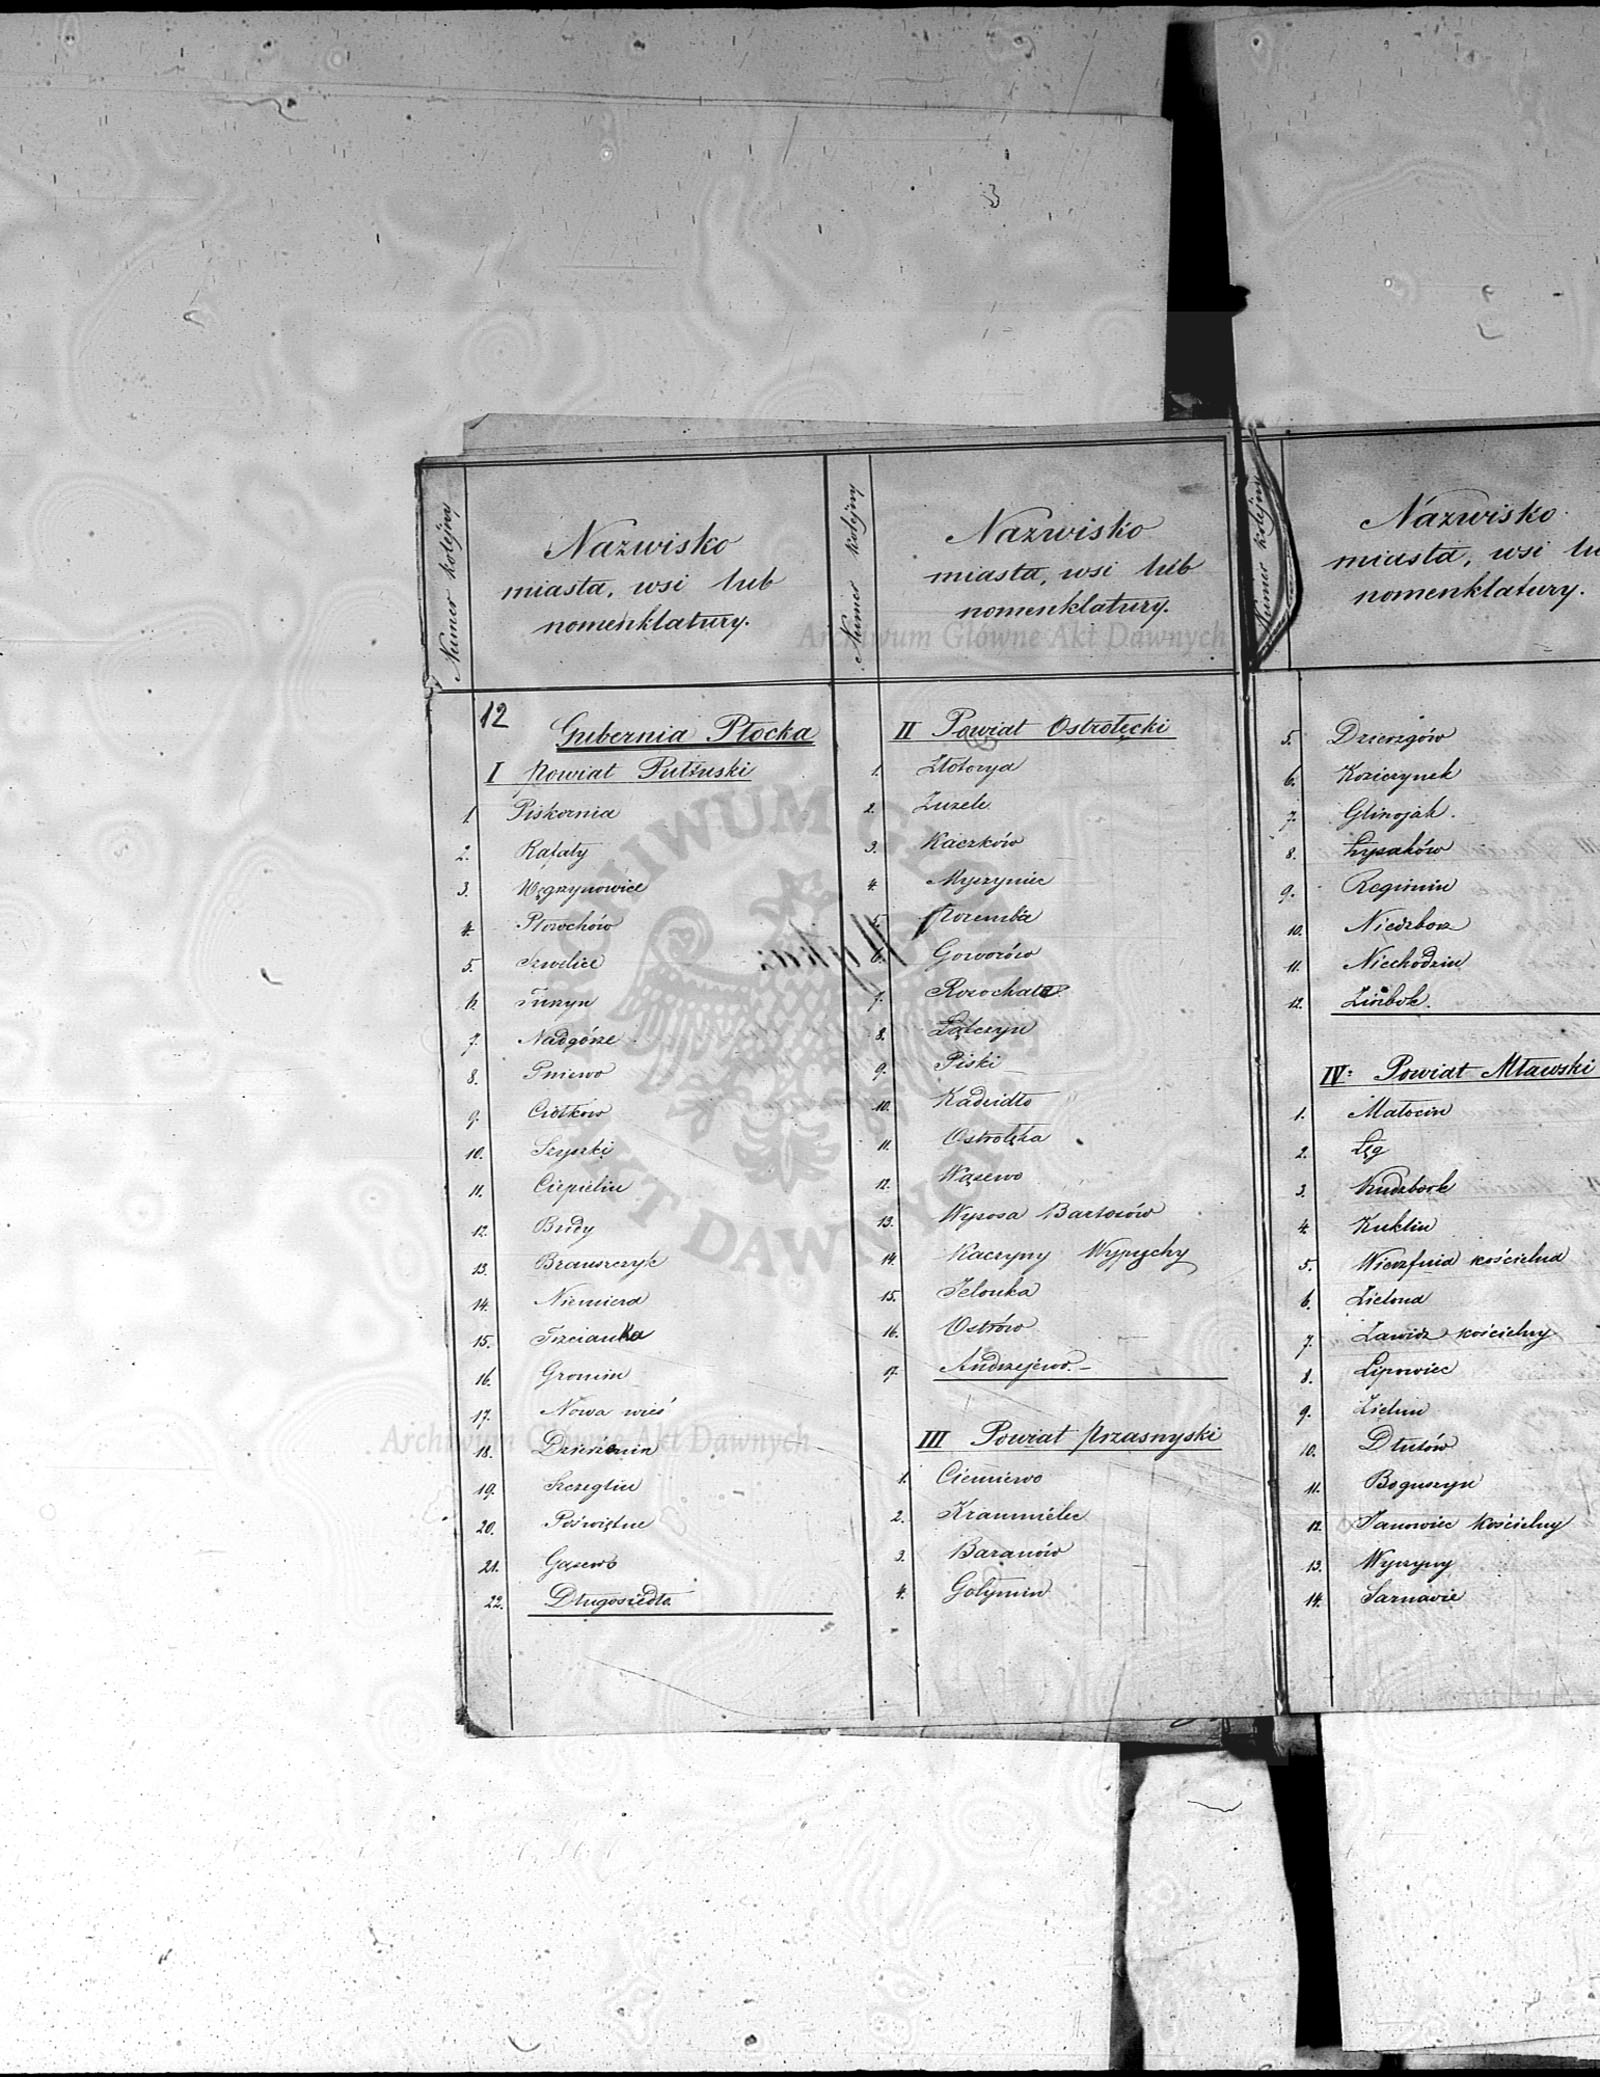 3
Numer kolejny
Nazwisko
miasta, wsi lub
nomenklatury.
12
Gubernia Płocka
I Powiat Pułtuski
1. Piskornia
2. Rafały
3. Węgrzynowice
4. Płorochów
5. Szwelice
6.
7. Nadgórze
8. Pniewo
9. Ciółkow
10. Szyszki
11. Ciepielin
12. Budy
13. Brańszczyk
14. Niemierd
15. Trzcianka
16. Gromin
17. Nowa wieś
18. Dzierżenin
19. Szczeglin
20. Poświętne
21. Gąsewo
22. Długosiodło
Numer kolejny
Nazwisko
miasta, wsi lub
nomenklatury.
II Powiat Ostrołęcki
1. Złotorya
2. Zuzele
3. Kaczków
4. Myszyniec
5. Poremba
6. Goworów
7.
8. Łątczyn
9. Piski
10. Kadzidło
11. Ostrołęka
12. Wąsewo
13. Wysosa Bartosów
14. Kaczyny Wypychy
15. Jelonka
16. Ostrów
17. Andrzejewo.
III Powiat Przasnyski
1. Ciemiewo
2.
3. Baranów
4. Gołymin
Numer kolejny
Nazwisko
miasta, wsi lu
nomenklatury.
5. Dzierzgów
6. Koziczynek
7. Glinojak.
8. Łysaków
9. Regimin
10. Niedzborz
11. Niechodzin
12. Żurbok.
IV: Powiat Mławski
1. Małocin
2. Łęg
3. Kudzbork
4. Kuklin
5. Wieczfnia kościelna
6. Zielona
7. Zawidz kościelny
8. Lipowiec
9. Zielun
10. Dłutów
11. Boguszyn
12. Janowiec Kościelny
13. Wyszyny
14. Sarnowie
Archiwum Główne Akt Dawnych
ARCHIWUM GŁÓWNE
AKT DAWNYCH
Archiwum Główne Akt Dawnych